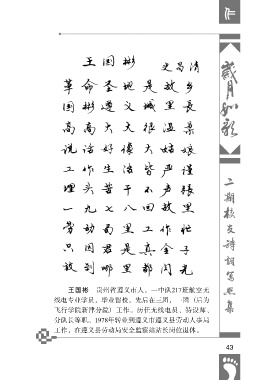 王国彬
史易清
革命圣地是故乡
国彬遵义城里长
高高大大很温柔
说话好像大姑娘
工作生活皆严谨
埋头苦干不声张
一九七八回故里
劳动局里工作忙
只因君是真金子
放到哪里都闪光
王国彬 贵州省遵义市人。一中队217班航空无
线电专业学员，毕业留校。先后在三团、一团（后为
飞行学院新津分院）工作。历任无线电员、特设师、
分队长等职。1978年转业到遵义市遵义县劳动人事局
工作，在遵义县劳动局安全监察站站长岗位退休。
岁月如歌
二期校友诗词写照集
43